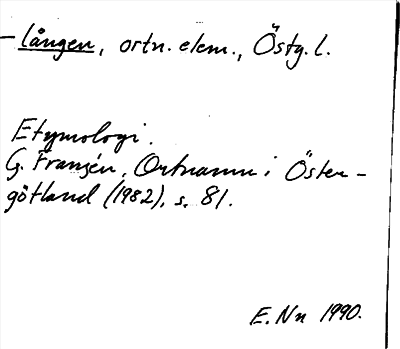 -lången, ortn. elem., Östg. l.
Etymologi.
G. Franzén, Ortnamn i Öster-
götland (1982), s. 81.
E. Nn 1990.